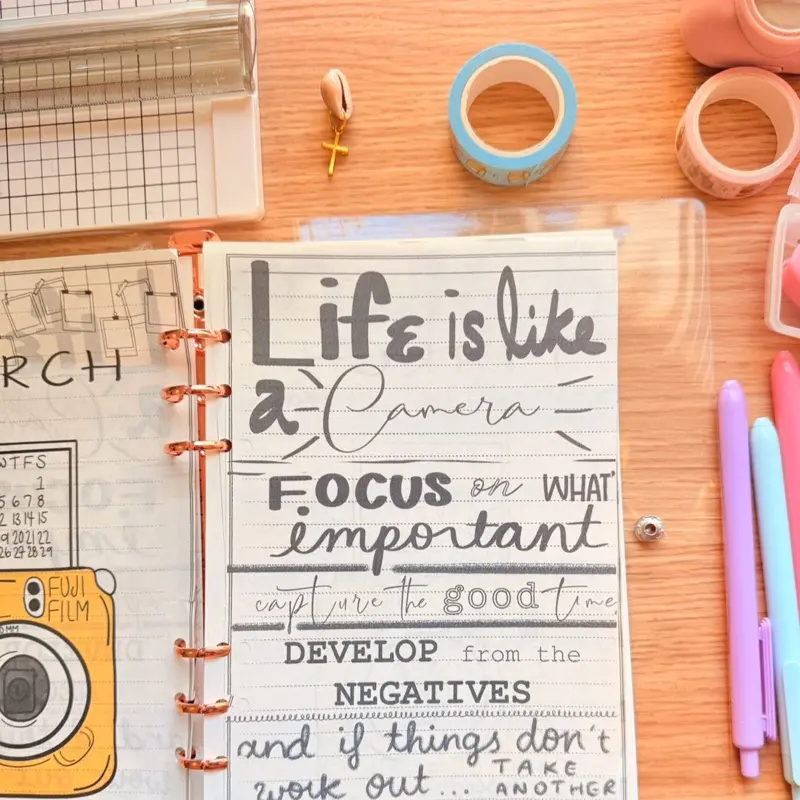 RCH
WTFS
1
5 6 7 8
2 13 14 15
9 20 21 22
26 27 28 29
FUJI
FILM
MM
Life is like
a Camera
FOCUS on WHAT'
important
capture the good time
DEVELOP from the
NEGATIVES
and if things don't
work out... TAKE
ANOTHER